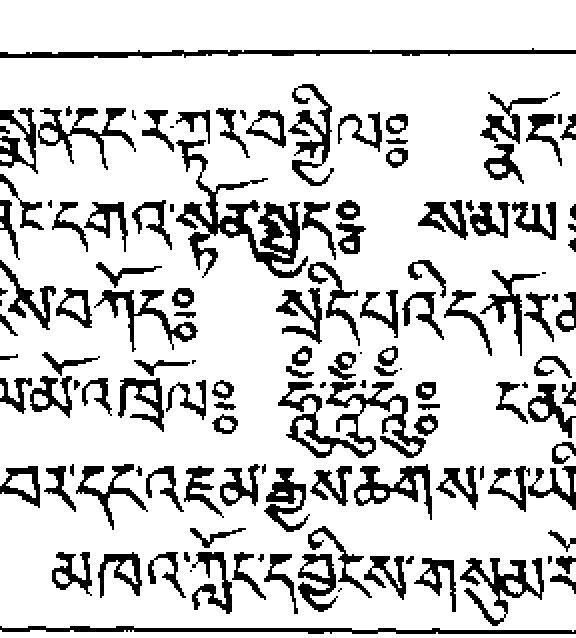 སྨན་དང་རཀྟར་བསྐྱིལ༔ སྣོད་
ཞིང་དགའ་སྟོན་ ས་མ་ཡ༔
བཀོད༔ སྲིད་པའི་དཀོར་
མོ་འཁྲོལ༔ ཧཱུྃ་ཧཱུྃ་ཧཱུྃ༔ ད་ནི
བར་དང་འཇམ་རྒྱས་ཆགས་པ་ཡི
མཁའ་ཀློང་དབྱིངས་གསུམ་